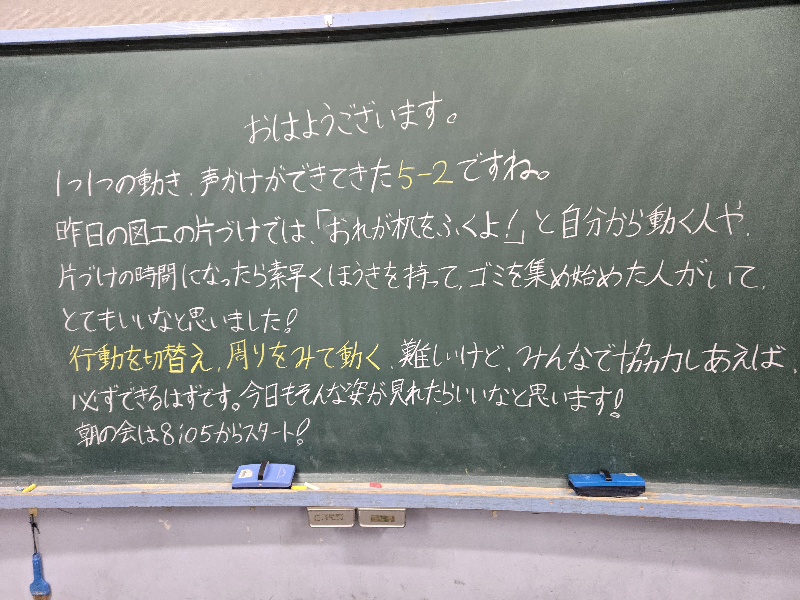 おはようございます。
1つ1つの動き、声かけができてきた5-2ですね。
昨日の図工の片づけでは、「おれが机をふくよ!」と自分から動く人や、
片づけの時間になったら素早くほうきを持って、ゴミを集め始めた人がいて、
とてもいいなと思いました!
行動を切替え、周りをみて動く、難しいけど、みんなで協力しあえば、
必ずできるはずです。今日もそんな姿が見れたらいいなと思います!
朝の会は8:05からスタート!